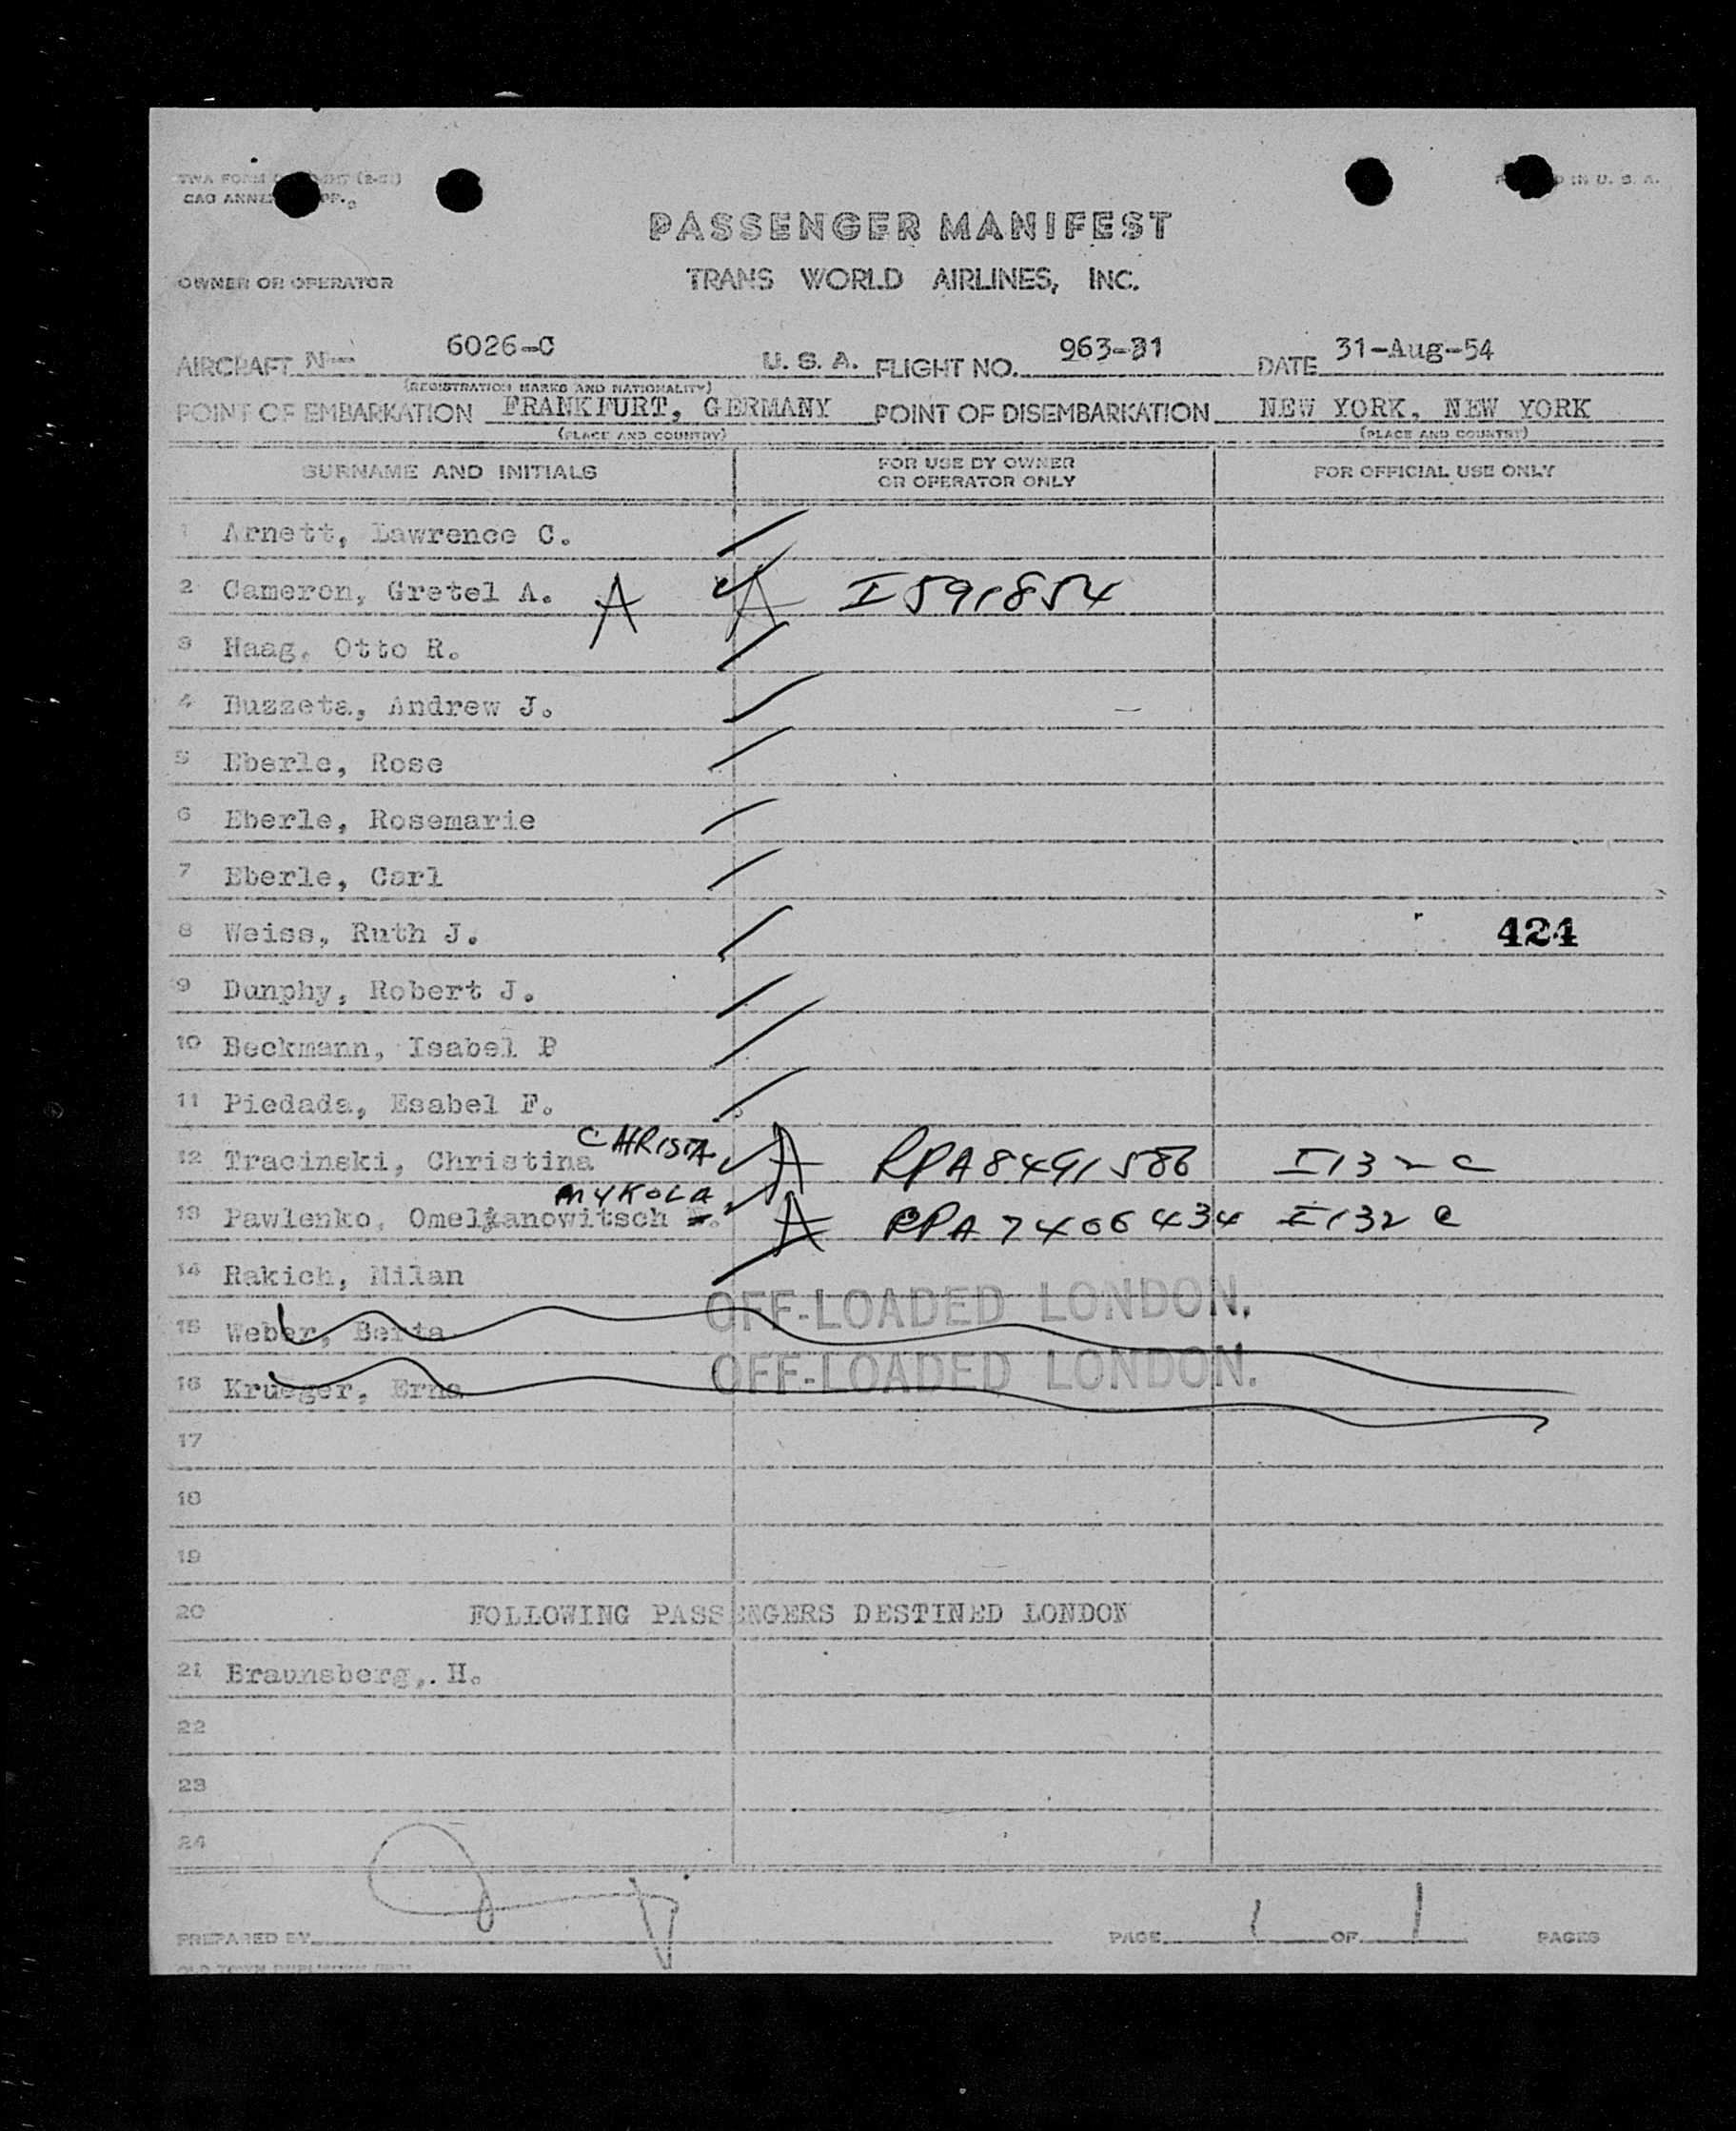 TWA FORM
CAO ANNEX
PRINTED IN U. S. A.
PASSENGER MANIFEST
OWNER OR OPERATOR TRANS WORLD AIRLINES, INC.
AIRCRAFT N-- 6026-C U. S. A. FLIGHT NO. 963-31 DATE 31-Aug-54
(REGISTRATION MARKS AND NATIONALITY)
POINT OF EMBARKATION FRANKFURT, GERMANY POINT OF DISEMBARKATION NEW YORK, NEW YORK
(PLACE AND COUNTRY) (PLACE AND COUNTRY)
SURNAME AND INITIALS FOR USE BY OWNER OR OPERATOR ONLY FOR OFFICIAL USE ONLY
1 Arnett, Lawrence C.
2 Cameron, Gretel A. A A I591854
3 Haag, Otto R.
4 Buzzeta, Andrew J.
5 Eberle, Rose
6 Eberle, Rosemarie
7 Eberle, Carl
8 Weiss, Ruth J. 424
9 Dunphy, Robert J.
10 Beckmann, Isabel P
11 Piedada, Esabel F.
CHRISTA
12 Tracinski, Christina A RPA8491586 I132C
MYKOLA
13 Pawlenko, Omeljanowitsch A RPA7406434 I132C
14 Rakich, Milan
OFF-LOADED LONDON.
15 Weber, Berta
OFF-LOADED LONDON.
16 Krueger, Erna
17
18
19
20 FOLLOWING PASSENGERS DESTINED LONDON
21 Braunsberg, H.
22
23
24
PREPARED BY PAGE 1 OF 1 PAGES